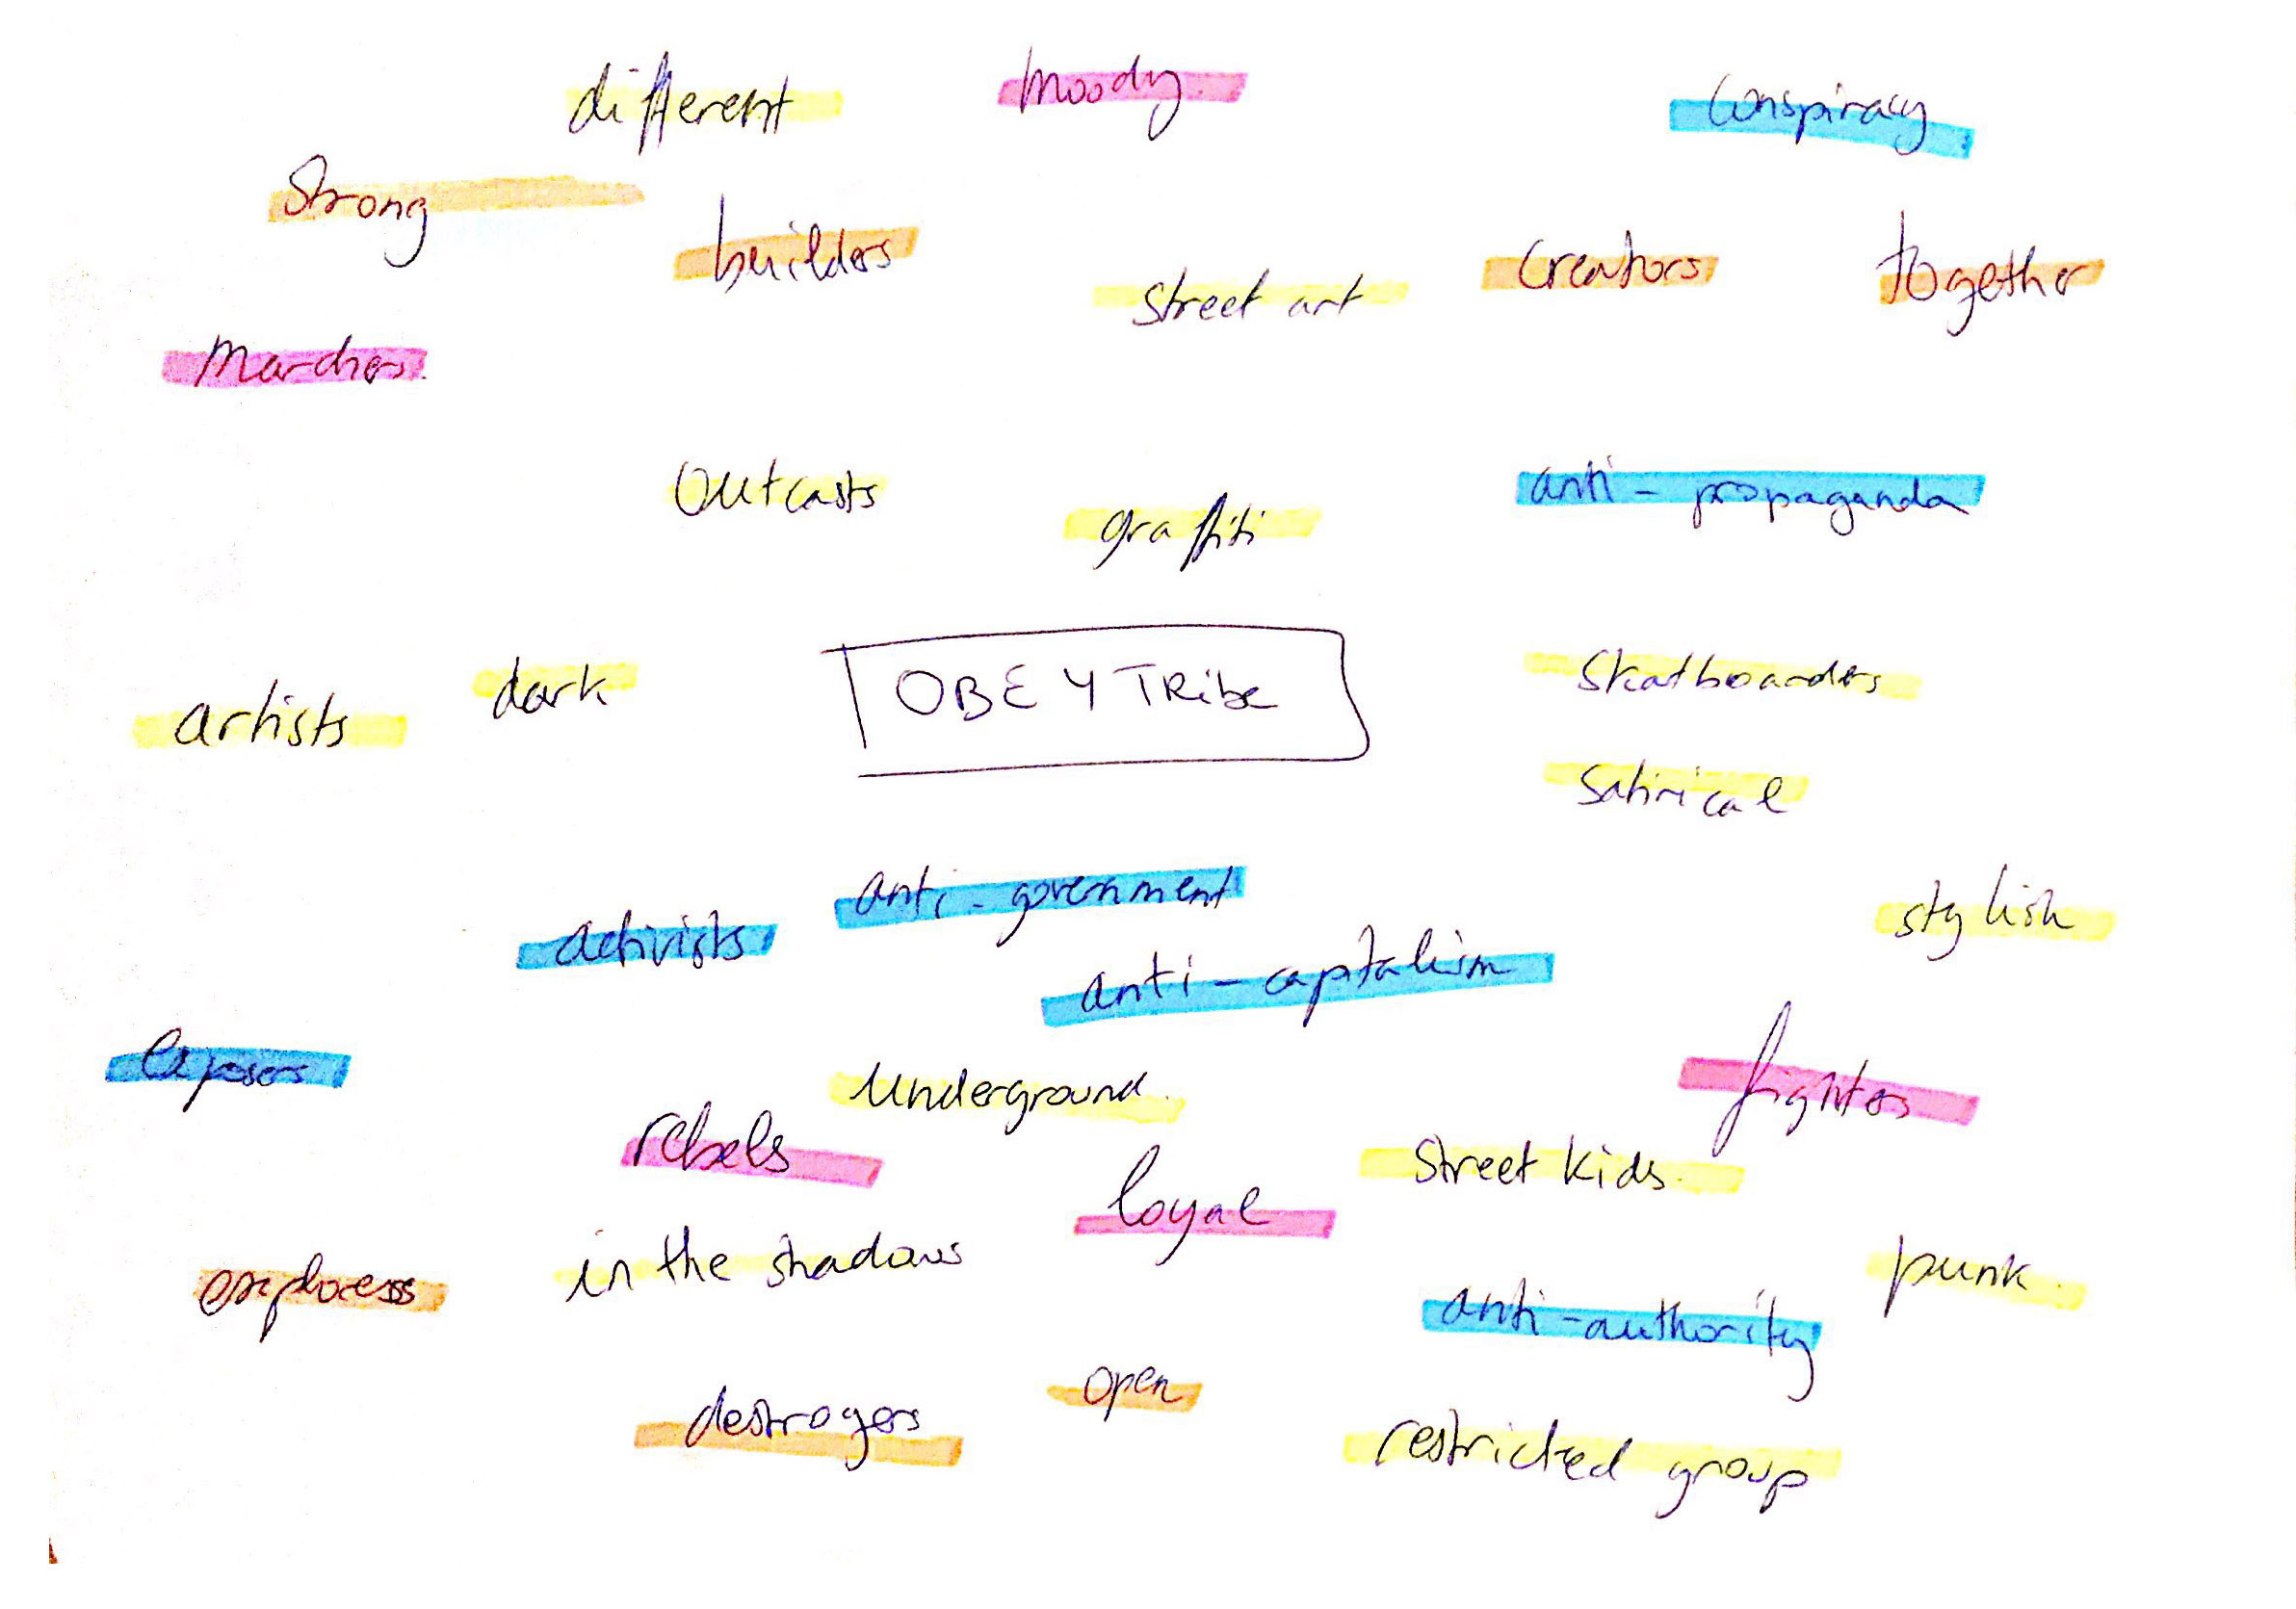 different
moody.
Conspiracy
Strong
builders
street art
Creators
together
Marchers.
Outcasts
graffiti
anti - propaganda
OBEY TRibe
dark
artists
Skatboarders
Satirical
anti - government
activists
anti - capitalism
stylish
exposers
underground.
fighters
rebels
street kids.
loyal
in the shadows
punk.
explorers
anti - authority
open
destroyers
restricted group